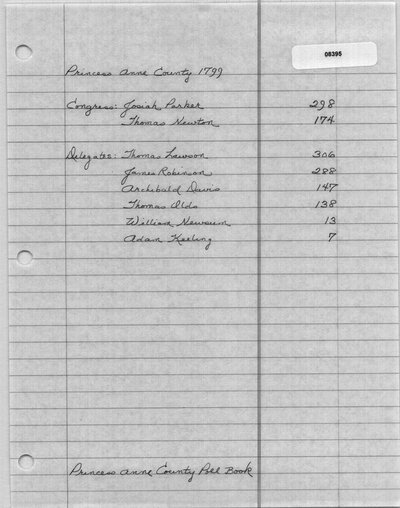 08395
Princess Anne County 1799
Congress: Josiah Parker 298
Thomas Newton 174
Delegates: Thomas Lawson 306
James Robinson 288
Archibald Davis 147
Thomas Olds 138
William Newsum 13
Adam Keeling 7
Princess Anne County Poll Book